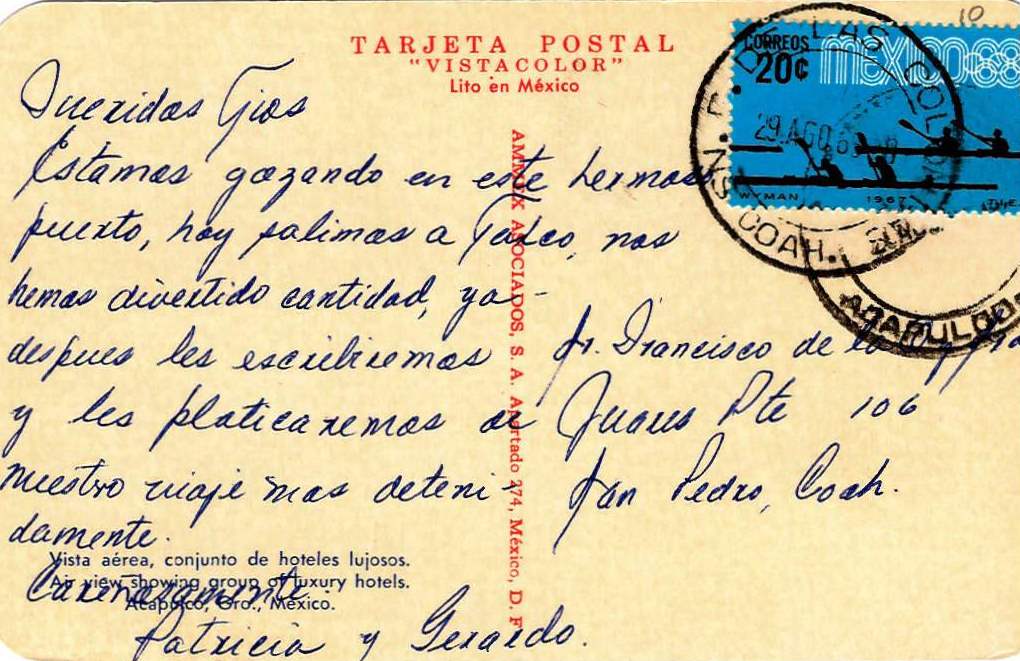 10
TARJETA POSTAL
"VISTACOLOR"
Lito en México
CORREOS
20¢
MEXICO68
WYMAN 1967
29 AGO 68
S. P. DE LAS COLONIAS, COAH.
ACAPULCO
Queridos Tios
Estamos gozando en este hermoso
puerto, hoy salimos a Taxco, nos
hemos divertido cantidad, ya
despues les escribiremos
y les platicaremos de
nuestro viaje mas deteni-
damente.
Cariñosamente.
Patricia y Gerardo.
AMMEX ASOCIADOS, S. A. Apartado 274, México, D. F.
Sr. Francisco de la
Juares Pte 106
San Pedro, Coah.
Vista aérea, conjunto de hoteles lujosos.
Air view showing group of luxury hotels.
Acapulco, Gro., México.